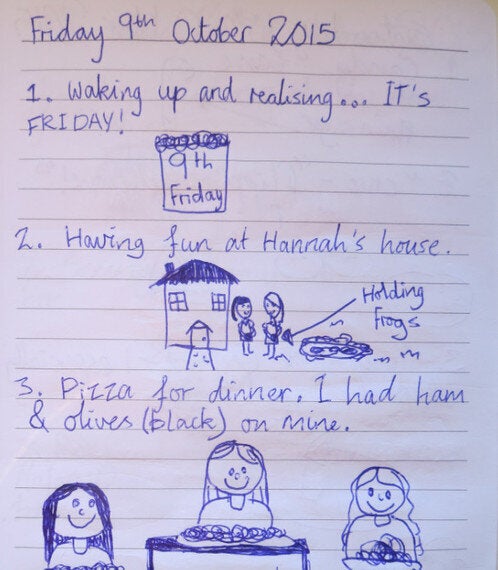 Friday 9th October 2015
1. Waking up and realising... IT's
FRIDAY!
9th
Friday
2. Having fun at Hannah's house.
Holding
frogs
3. Pizza for dinner. I had ham
& olives (black) on mine.